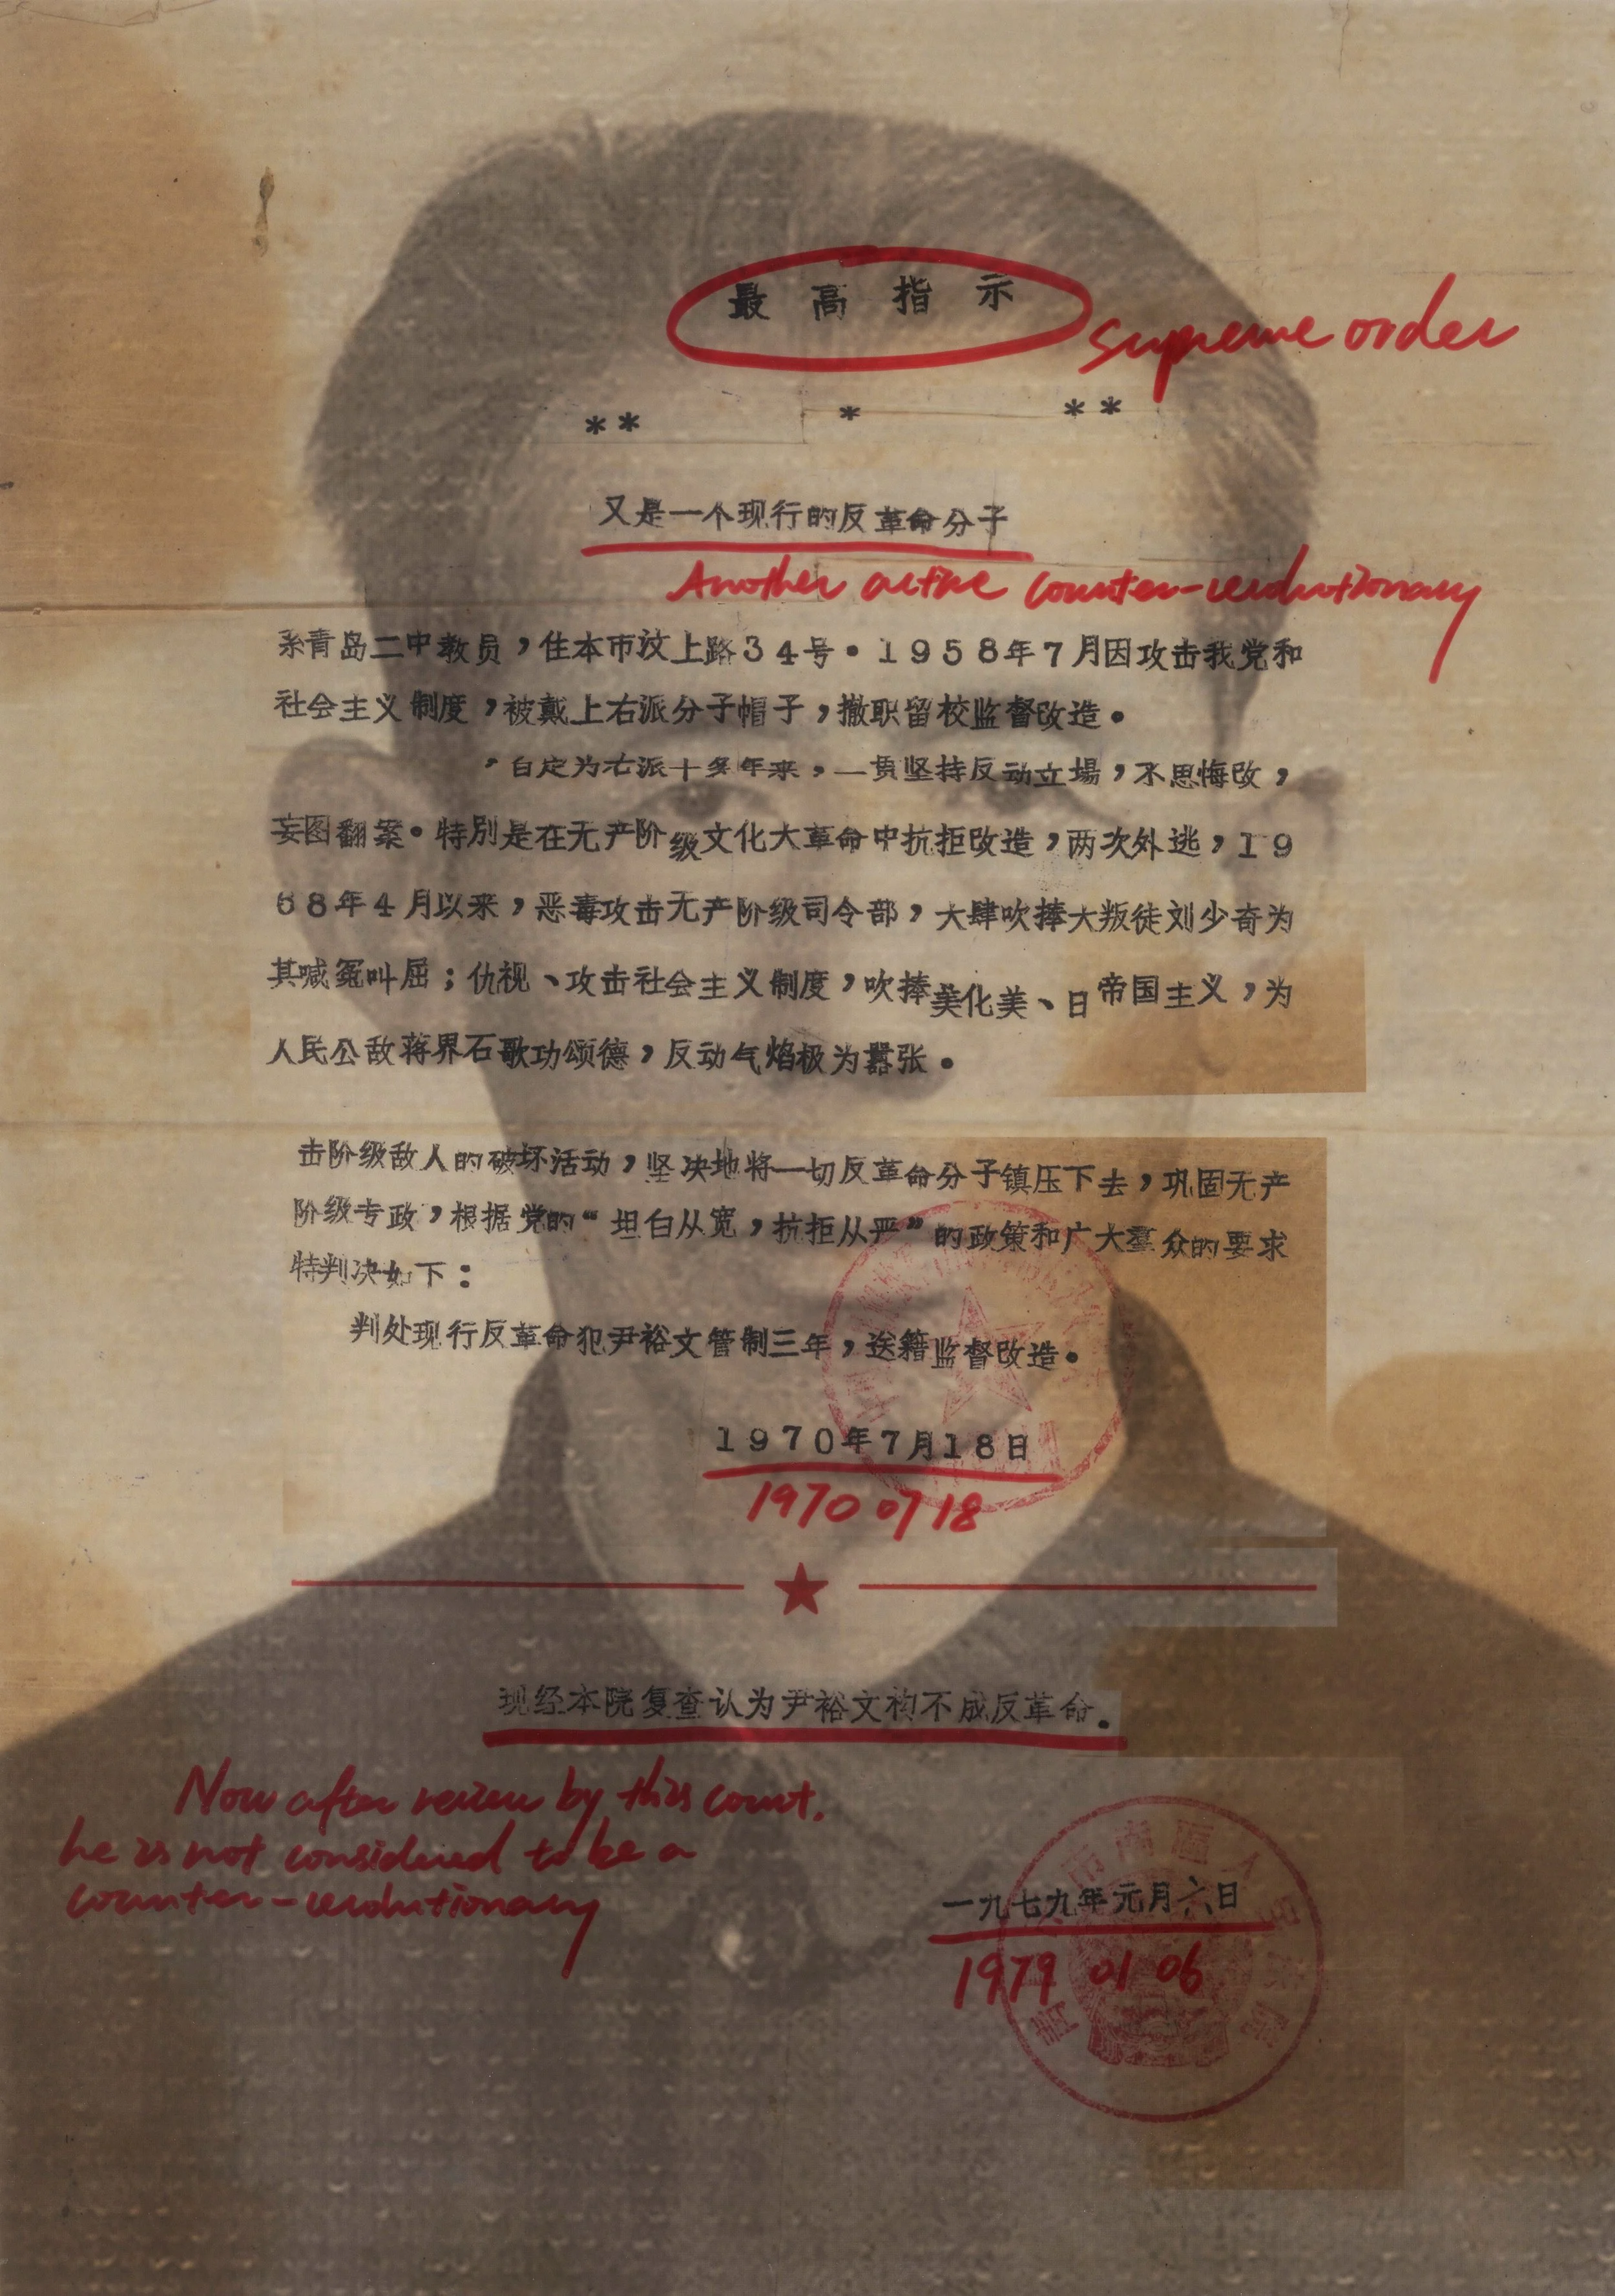 最高指示
supreme order
** * **
又是一个现行的反革命分子
Another active counter-revolutionary
系青岛二中教员，住本市汶上路34号。1958年7月因攻击我党和
社会主义制度，被戴上右派分子帽子，撤职留校监督改造。
，自定为右派十多年来，一贯坚持反动立場，不思悔改，
妄图翻案。特别是在无产阶级文化大革命中抗拒改造，两次外逃，19
68年4月以来，恶毒攻击无产阶级司令部，大肆吹捧大叛徒刘少奇为
其喊冤叫屈；仇视、攻击社会主义制度，吹捧美化美、日帝国主义，为
人民公敌蒋界石歌功颂德，反动气焰极为嚣张。
击阶级敌人的破坏活动，坚决地将一切反革命分子镇压下去，巩固无产
阶级专政，根据党的“坦白从宽，抗拒从严”的政策和广大羣众的要求
特判决如下：
判处现行反革命犯尹裕文管制三年，送籍监督改造。
1970年7月18日
1970 07 18
现经本院复查认为尹裕文构不成反革命。
Now after review by this court,
he is not considered to be a
counter-revolutionary
一九七九年元月六日
1979 01 06